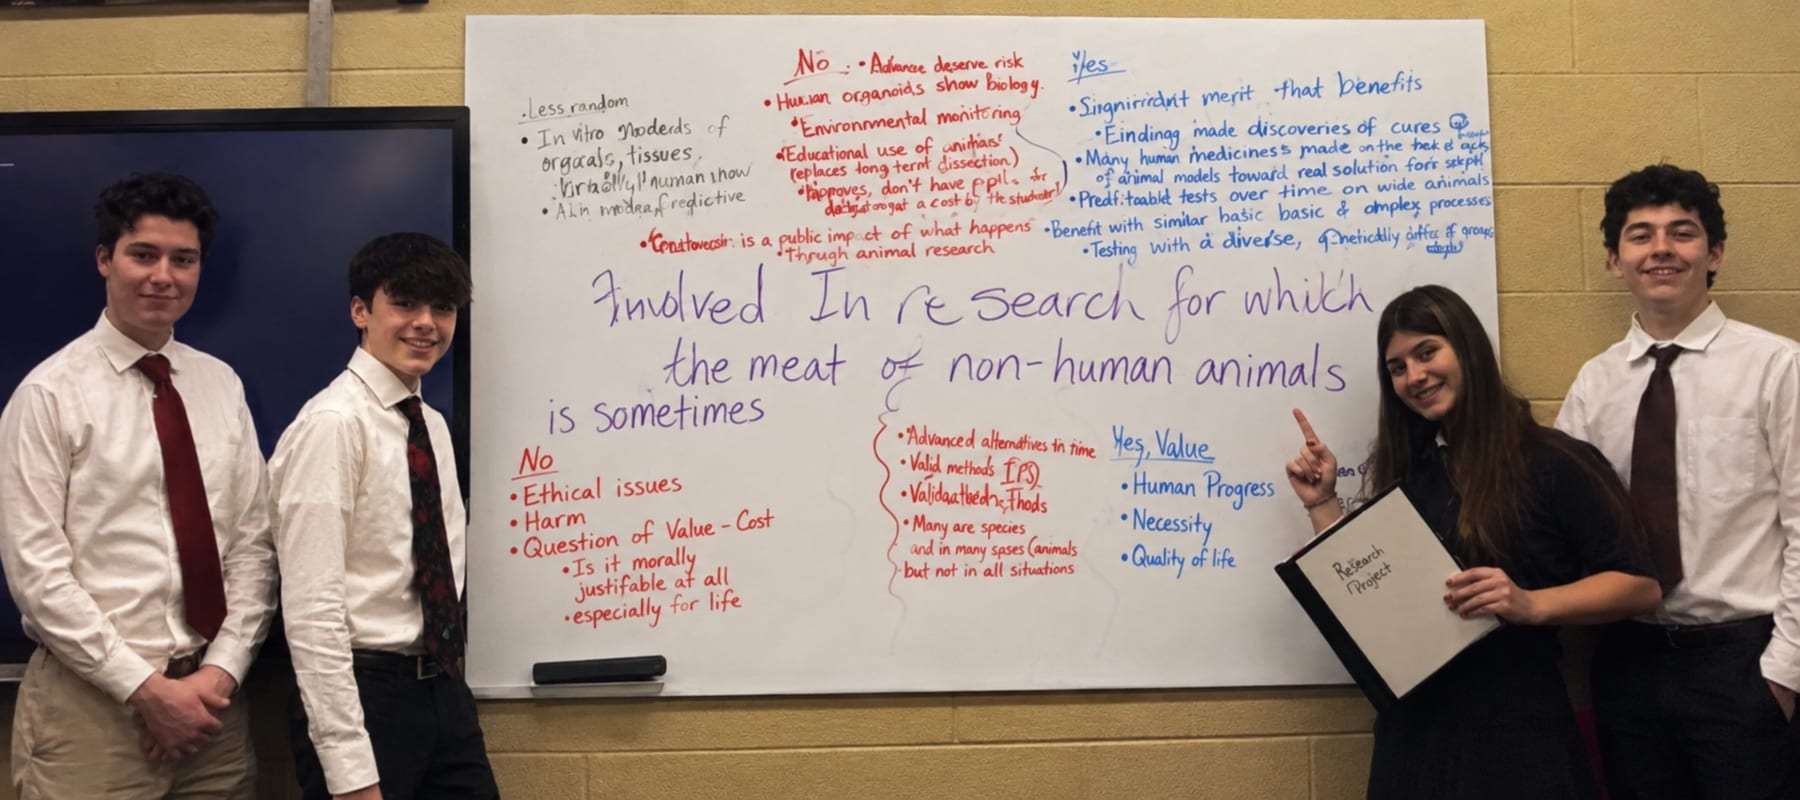 Less random
• In vitro of
tissues.
human show
•
No : • Advance deserve risk
• Human organoids show biology.
• Environmental monitoring
• Educational use of
replaces long term dissection)
• don't have
at a cost by the
is a public impact of what happens
• through animal research
Yes
• merit that benefits
• Eindinag made discoveries of cures
• Many human medicines made on the
of animal models toward real solution for
• tests over time on wide animals
• Benefit with similar basic basic & processes
• Testing with a diverse, of groups
Involved In research for which
the meat of non-human animals
is sometimes
No
• Ethical issues
• Harm
• Question of Value - Cost
• Is it morally
justifable at all
• especially for life
• Advanced alternatives in time
• Valid methods (IPS)
•
• Many are species
and in many spses (animals
• but not in all situations
Yes, Value
• Human Progress
• Necessity
• Quality of life
Research
Project